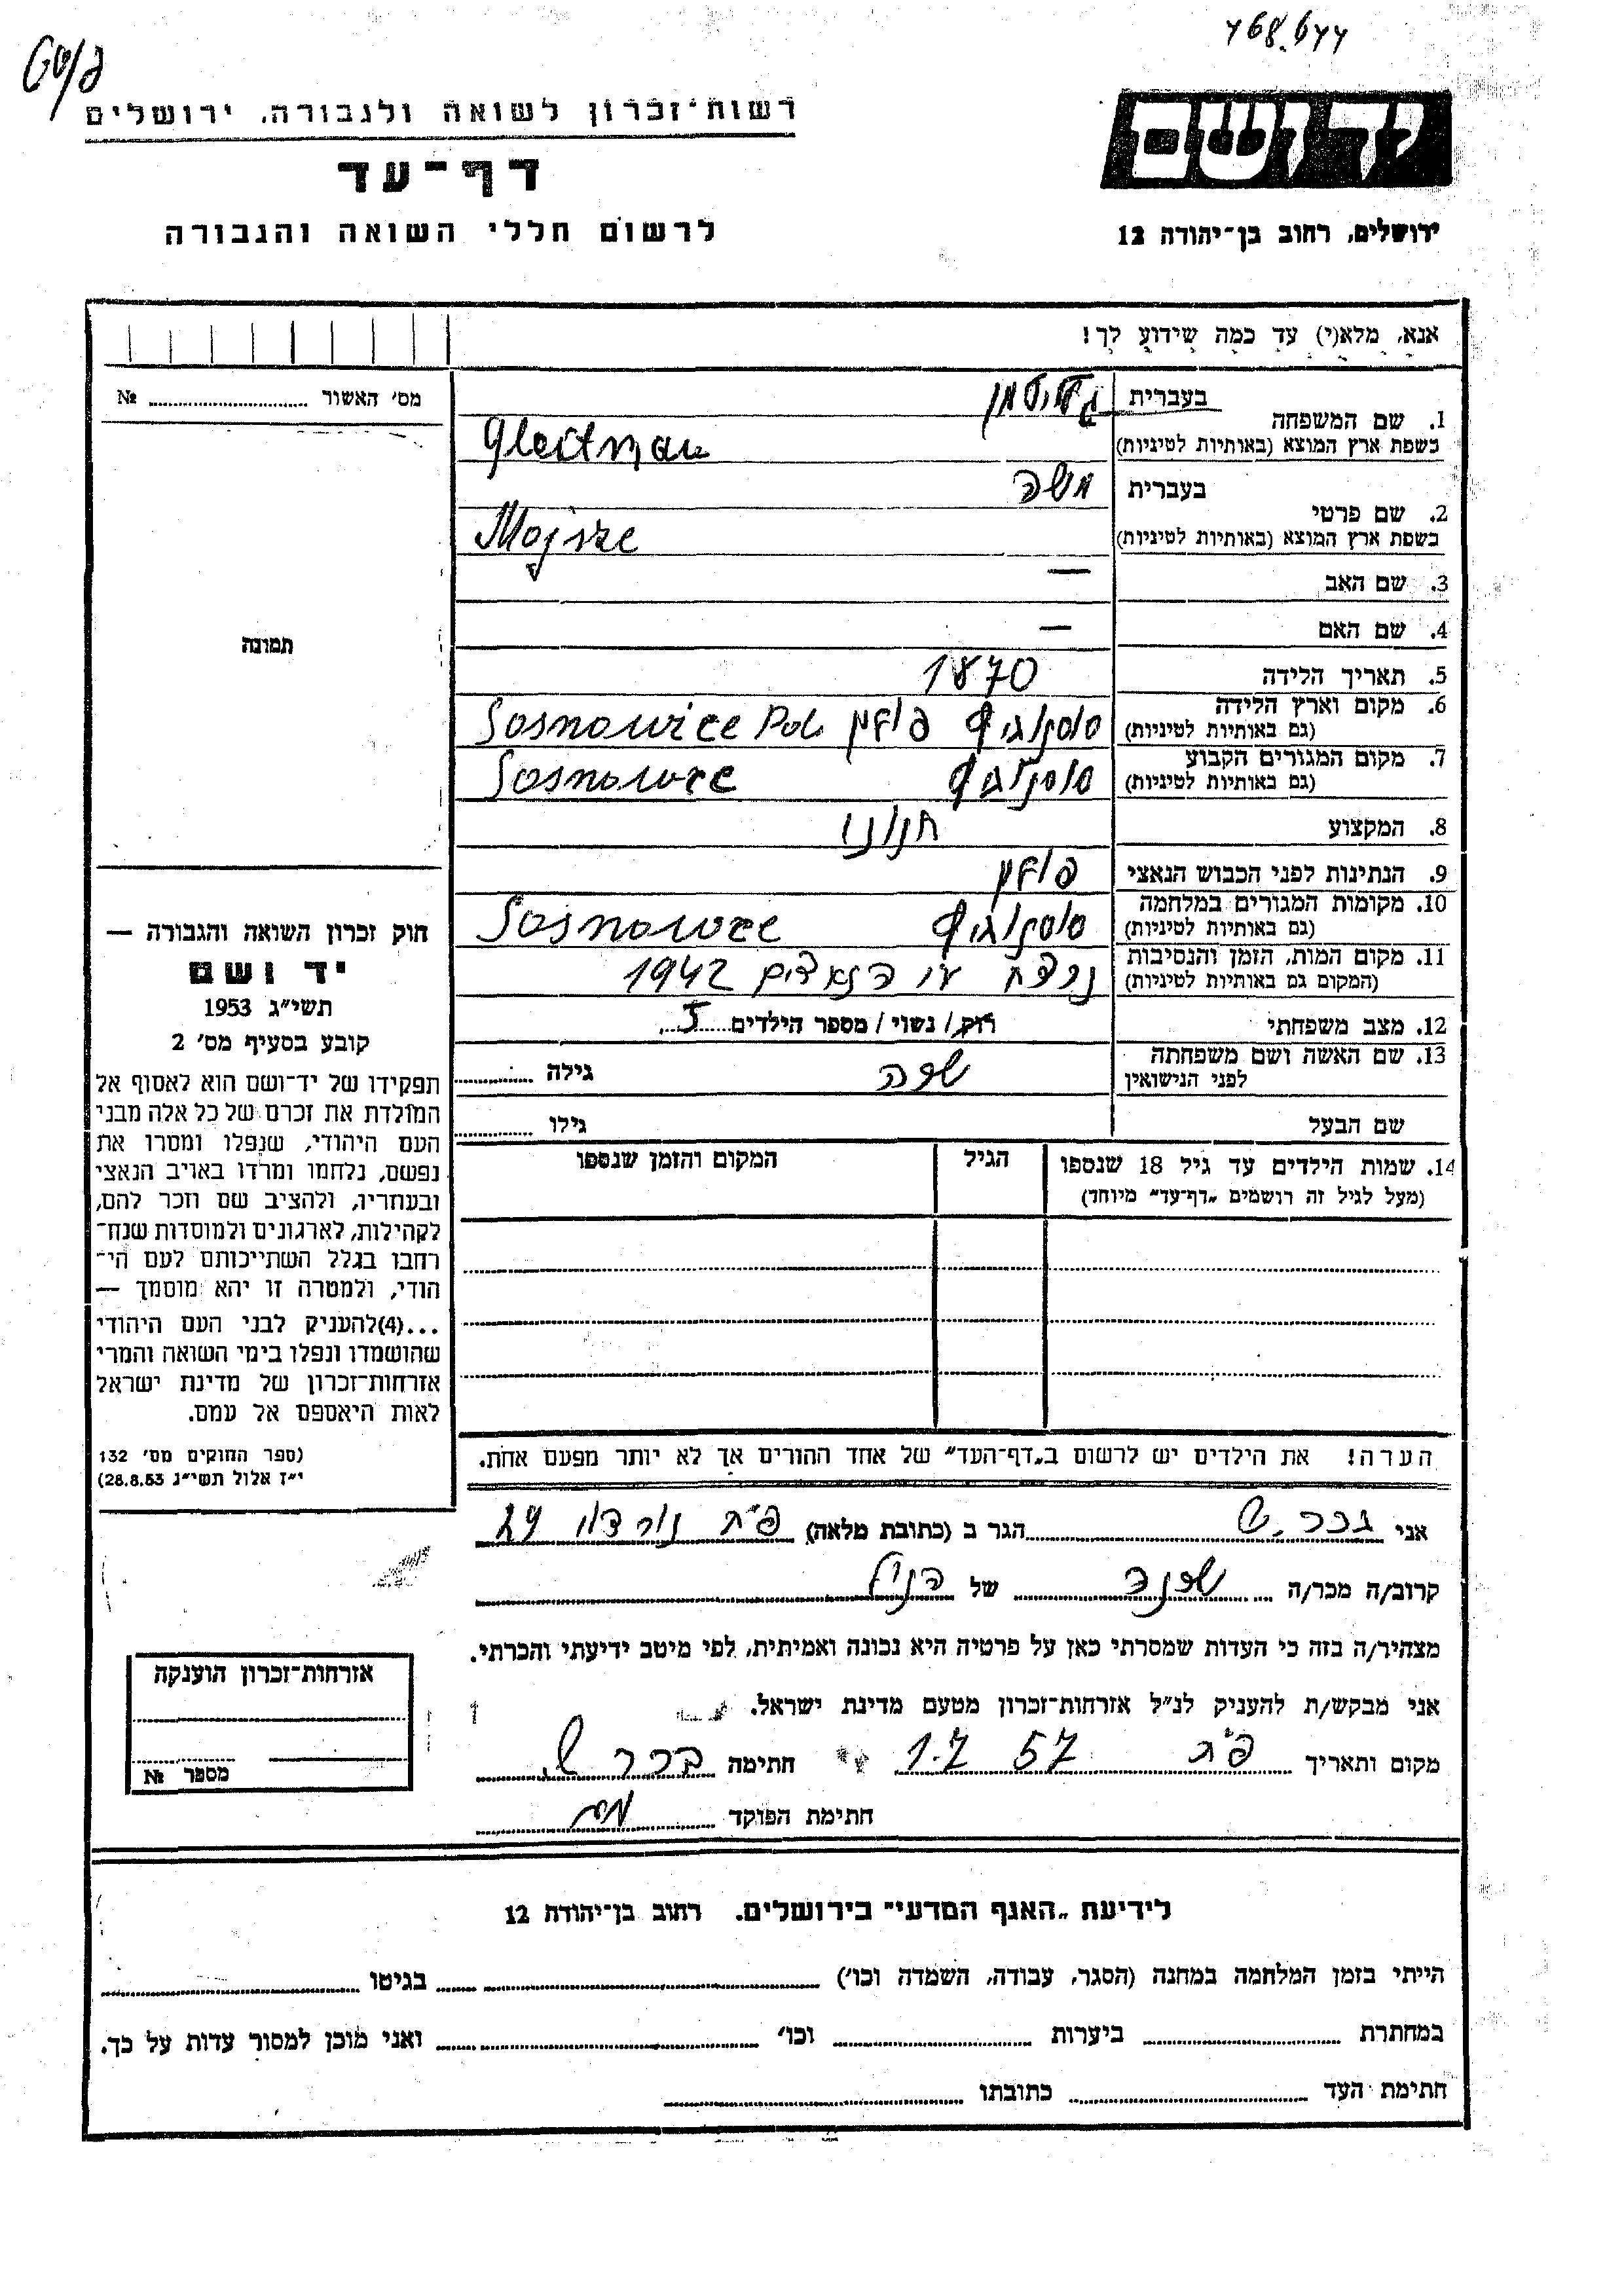 רשות־זכרון לשואה ולגבורה, ירושלים
דף־עד
לרשום חללי השואה והגבורה
יד ושם
ירושלים, רחוב בן־יהודה 12
אנא, מלא(י) עד כמה שידוע לך!
מס׳ האשור № 
1. שם המשפחה בעברית גלייטמן
בשפת ארץ המוצא (באותיות לטיניות) Gleitman
2. שם פרטי בעברית משה
בשפת ארץ המוצא (באותיות לטיניות) Mojsze
3. שם האב —
4. שם האם —
5. תאריך הלידה 1870
6. מקום וארץ הלידה (גם באותיות לטיניות) סוסנוביץ פולין Sosnowice Pol.
7. מקום המגורים הקבוע (גם באותיות לטיניות) סוסנוביץ Sosnowce
8. המקצוע חנוני
9. הנתינות לפני הכבוש הנאצי פולין
10. מקומות המגורים במלחמה (גם באותיות לטיניות) סוסנוביץ Sosnowce
11. מקום המות, הזמן והנסיבות (המקום גם באותיות לטיניות) נרצח ע״י הנאצים 1942
12. מצב משפחתי רוק / נשוי / מספר הילדים 5
13. שם האשה ושם משפחתה לפני הנישואין שרה גילה
שם הבעל גילו
14. שמות הילדים עד גיל 18 שנספו (מעל לגיל זה רושמים „דף־עד״ מיוחד) הגיל המקום והזמן שנספו
הערה! את הילדים יש לרשום ב„דף־העד״ של אחד ההורים אך לא יותר מפעם אחת.
תמונה
חוק זכרון השואה והגבורה —
יד ושם
תשי״ג 1953
קובע בסעיף מס׳ 2
תפקידו של יד־ושם הוא לאסוף אל
המולדת את זכרם של כל אלה מבני
העם היהודי, שנפלו ומסרו את
נפשם, נלחמו ומרדו באויב הנאצי
ובעוזריו, ולהציב שם וזכר להם,
לקהילות, לארגונים ולמוסדות שנח־
רחבו בגלל השתייכותם לעם הי־
הודי, ולמטרה זו יהא מוסמך —
...(4)להעניק לבני העם היהודי
שהושמדו ונפלו בימי השואה והמרי
אזרחות־זכרון של מדינת ישראל
לאות היאספם אל עמם.
(ספר החוקים מס׳ 132
י״ז אלול תשי״ג 28.8.53)
אני בכר ש. הגר ב (כתובת מלאה) פ״ת 29
קרוב/ה מכר/ה שכנה של הנ״ל
מצהיר/ה בזה כי העדות שמסרתי כאן על פרטיה היא נכונה ואמיתית, לפי מיטב ידיעתי והכרתי.
אני מבקש/ת להעניק לנ״ל אזרחות־זכרון מטעם מדינת ישראל.
מקום ותאריך פ״ת 1.7 57 חתימה בכר ש.
חתימת הפוקד
אזרחות־זכרון הוענקה
מספר №
לידיעת „האגף המדעי״ בירושלים, רחוב בן־יהודה 12
הייתי בזמן המלחמה במחנה (הסגר, עבודה, השמדה וכו׳) בגיטו
במחתרת ביערות וכו׳ ואני מוכן למסור עדות על כך.
חתימת העד כתובתו